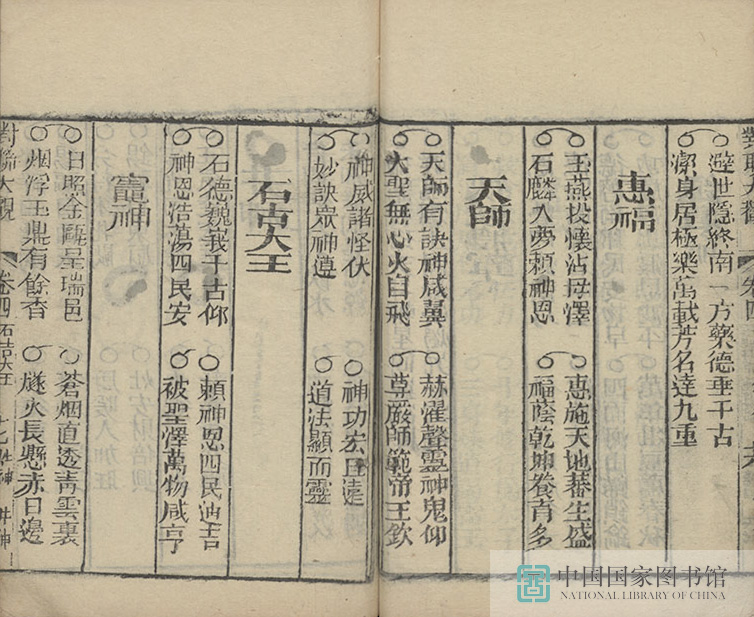 避世隱終南一方藥德垂千古
潔身居極樂萬載芳名達九重
惠福
玉燕投懷沾母澤 惠施天地蕃生盛
石麟入夢賴神恩 福蔭乾坤養育多
天師
天師有訣神咸翼 赫濯聲靈神鬼仰
大聖無心火自飛 尊嚴師範帝王欽
神威諸怪伏 神功宏且遠
妙訣眾神遵 道法顯而靈
石古大王
石德巍峩千古仰 賴神恩四民迪吉
神恩浩蕩四民安 被聖澤萬物咸亨
竈神
日照金甌呈瑞色 蒼烟直透青雲裏
烟浮玉鼎有餘香 燧火長懸赤日邊
對聯大觀 卷四 石古大王
中国国家图书馆
NATIONAL LIBRARY OF CHINA